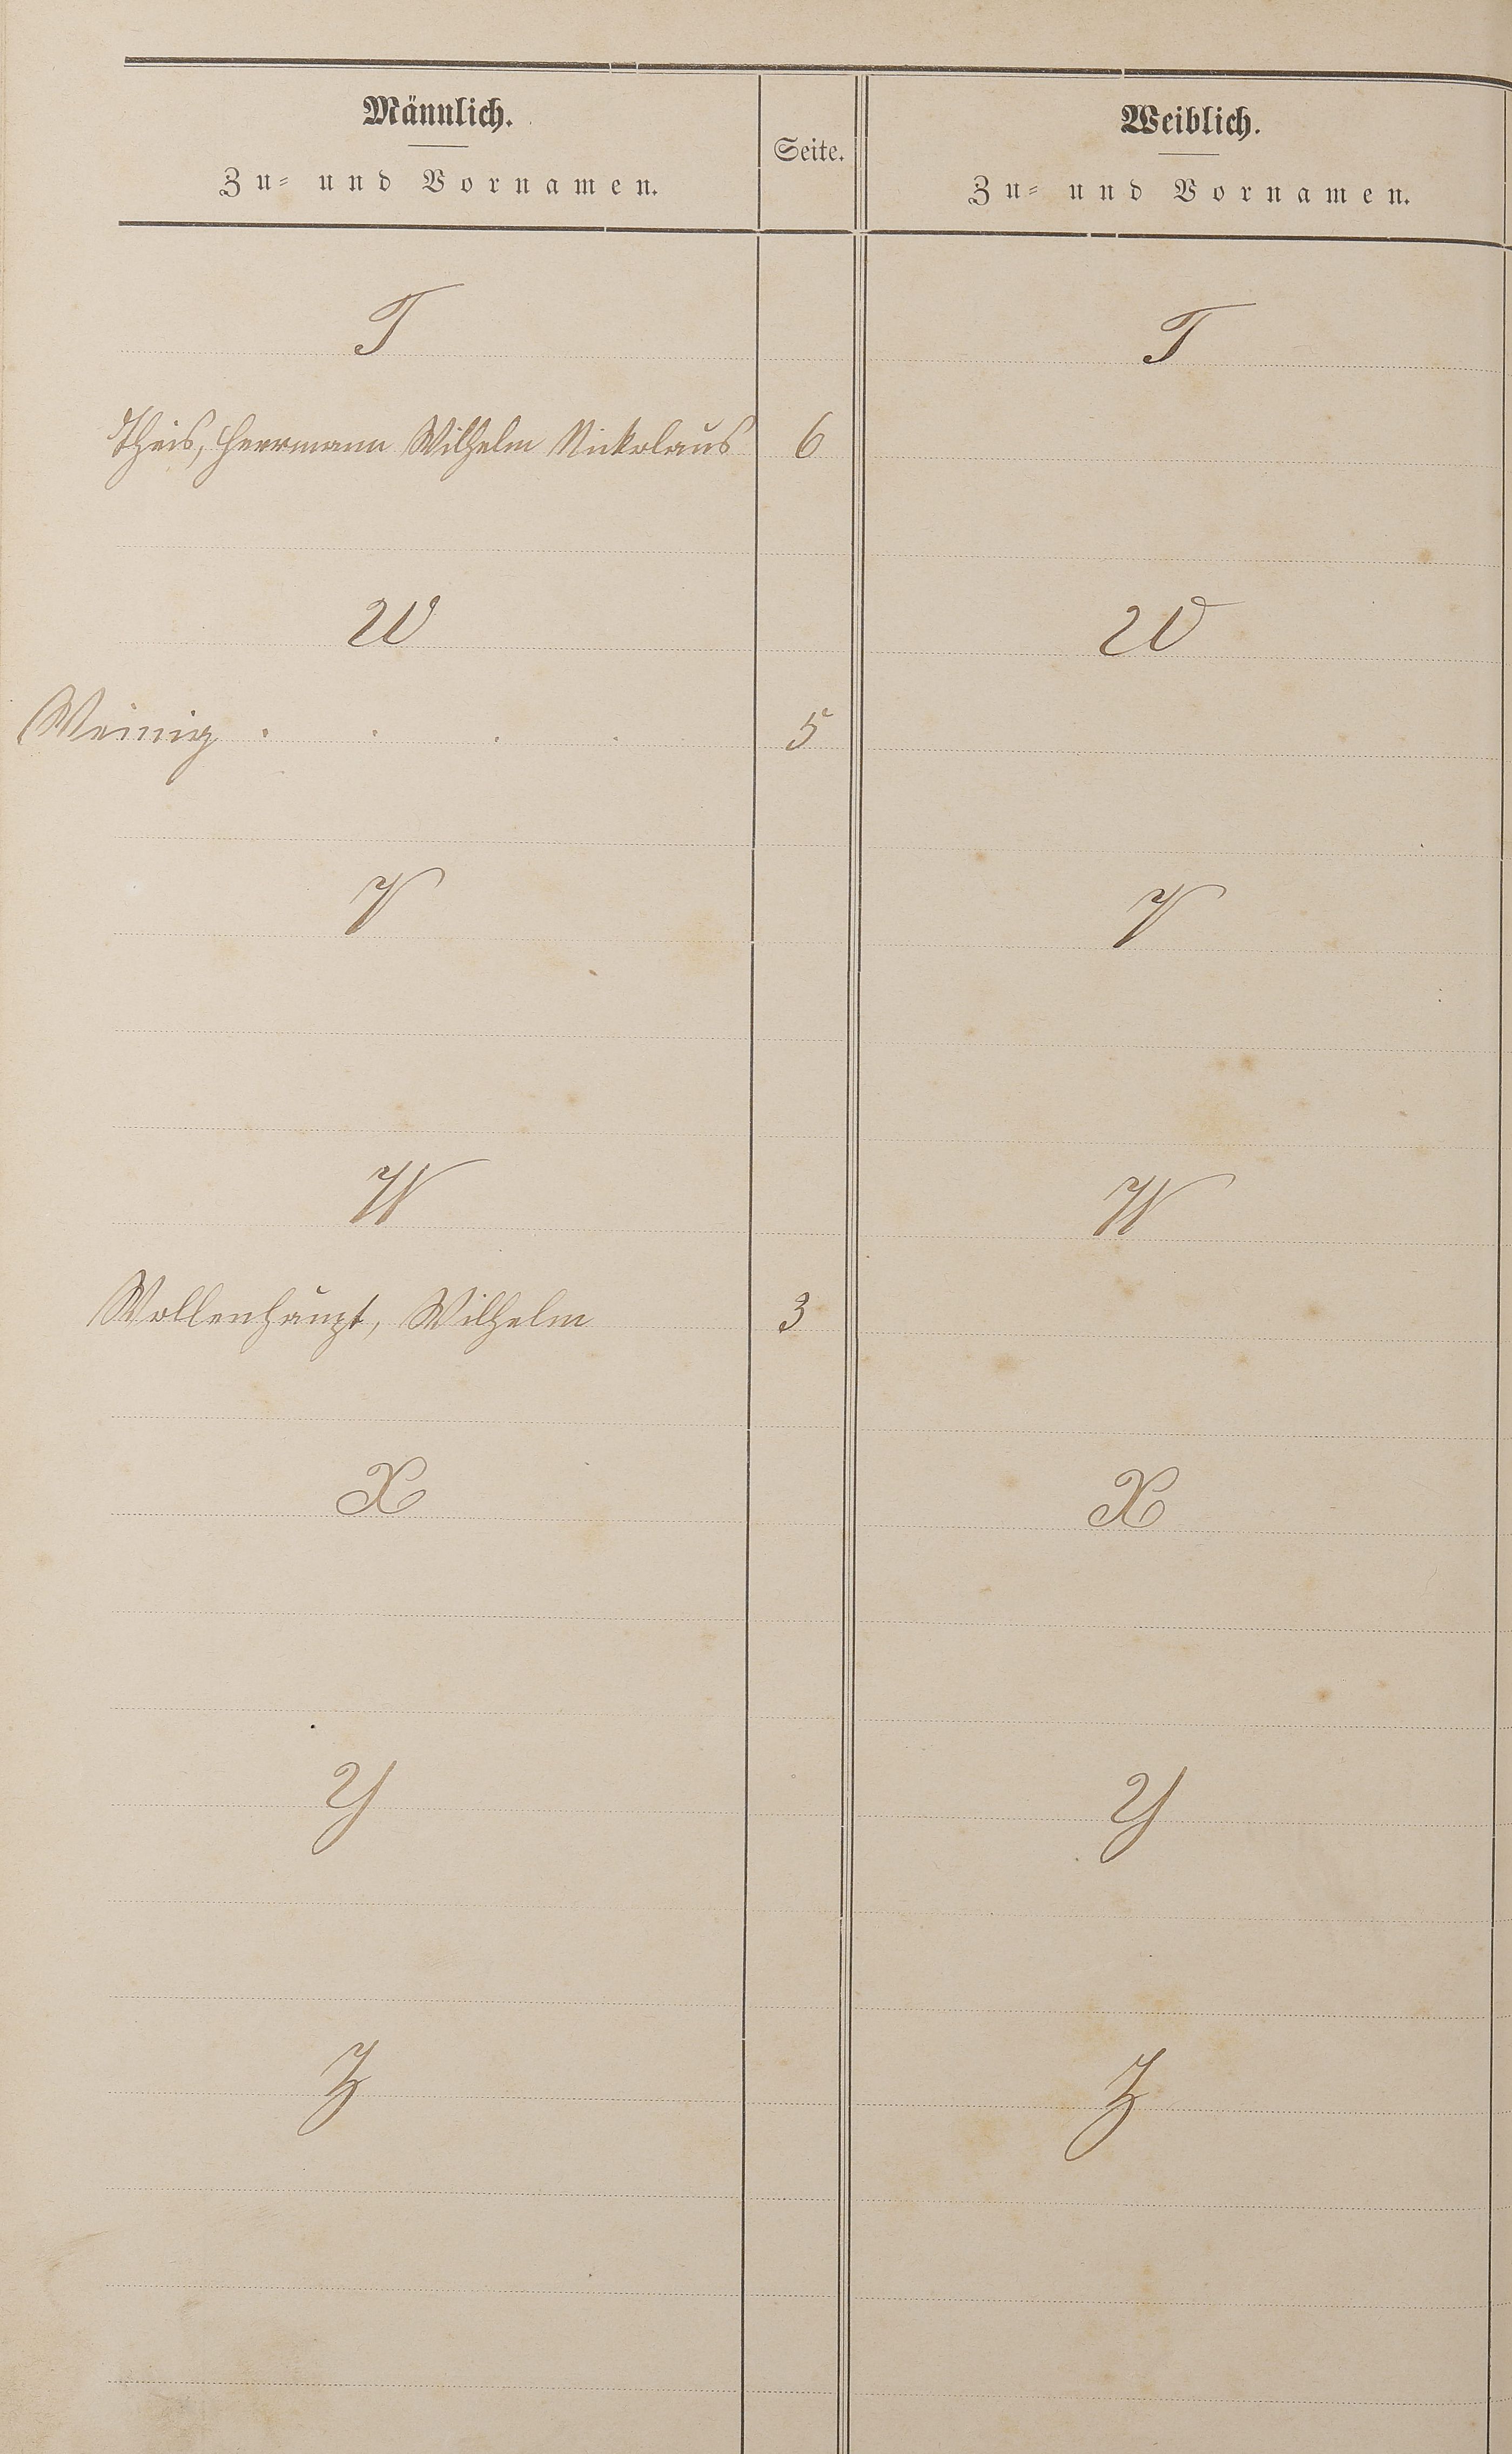 Männlich.
Zu- und Vornamen.
Seite.
Weiblich.
Zu- und Vornamen.
T
T
Theis, Herrmann Wilhelm Nickolaus 6
U
U
Weinig . . . . 5
V
V
W
W
Wollenhaupt, Wilhelm 3
X
X
Y
Y
Z
Z